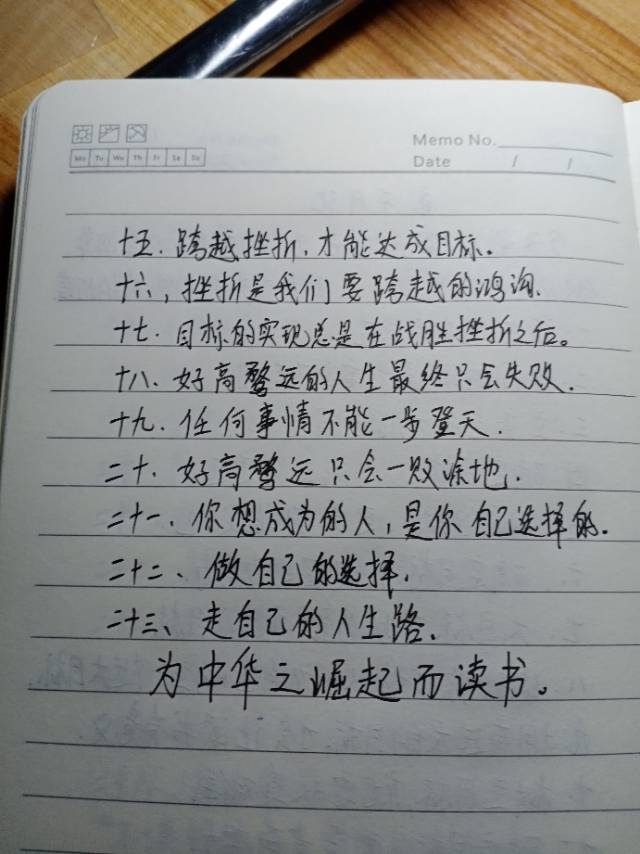 Memo No.
Mo Tu We Th Fr Sa Su
Date / /
十五.跨越挫折,才能达成目标。
十六,挫折是我们要跨越的鸿沟.
十七.目标的实现总是在战胜挫折之后。
十八.好高骛远的人生最终只会失败.
十九.任何事情不能一步登天.
二十.好高骛远只会一败涂地.
二十一.你想成为的人,是你自己选择的.
二十二、做自己的选择.
二十三、走自己的人生路.
为中华之崛起而读书。